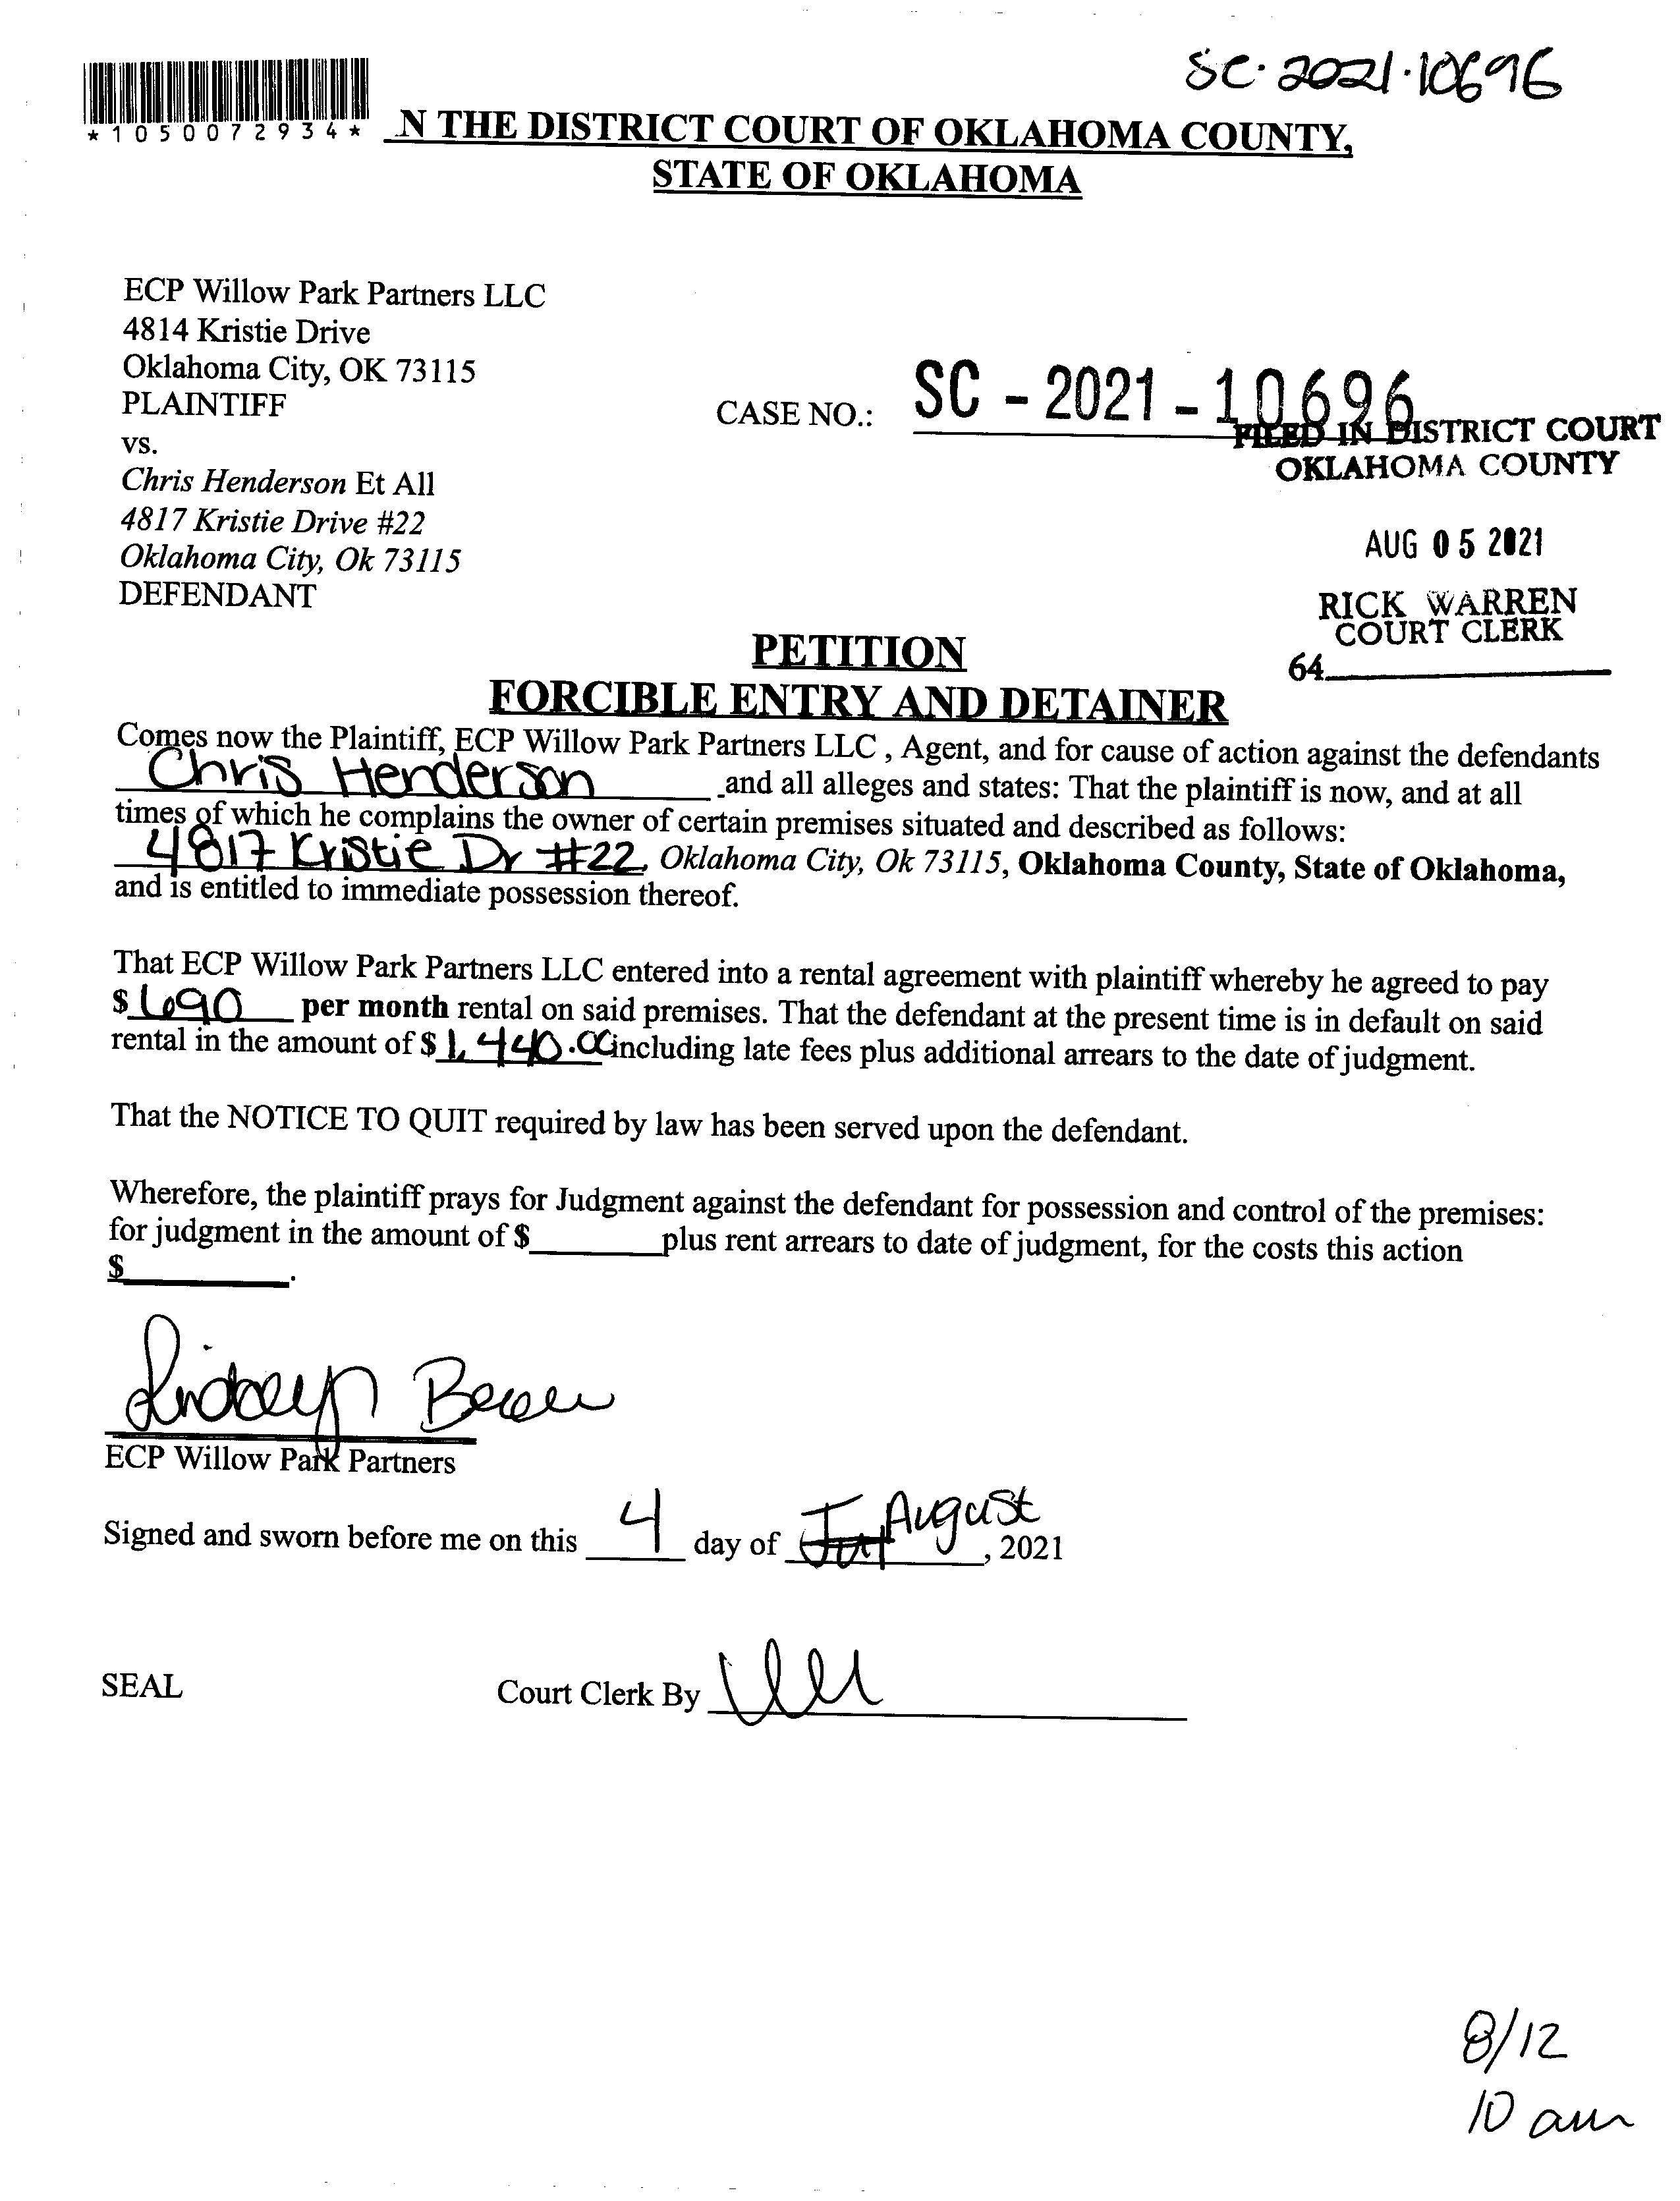 SC·2021·10696
*1050072934*
N THE DISTRICT COURT OF OKLAHOMA COUNTY,
STATE OF OKLAHOMA
ECP Willow Park Partners LLC
4814 Kristie Drive
Oklahoma City, OK 73115
PLAINTIFF
vs.
Chris Henderson Et All
4817 Kristie Drive #22
Oklahoma City, Ok 73115
DEFENDANT
CASE NO.: SC - 2021 - 10696
FILED IN DISTRICT COURT
OKLAHOMA COUNTY
AUG 05 2021
RICK WARREN
COURT CLERK
64
PETITION
FORCIBLE ENTRY AND DETAINER
Comes now the Plaintiff, ECP Willow Park Partners LLC , Agent, and for cause of action against the defendants
Chris Henderson and all alleges and states: That the plaintiff is now, and at all
times of which he complains the owner of certain premises situated and described as follows:
4817 Kristie Dr #22, Oklahoma City, Ok 73115, Oklahoma County, State of Oklahoma,
and is entitled to immediate possession thereof.
That ECP Willow Park Partners LLC entered into a rental agreement with plaintiff whereby he agreed to pay
$ 690 per month rental on said premises. That the defendant at the present time is in default on said
rental in the amount of $ 1,440.00 including late fees plus additional arrears to the date of judgment.
That the NOTICE TO QUIT required by law has been served upon the defendant.
Wherefore, the plaintiff prays for Judgment against the defendant for possession and control of the premises:
for judgment in the amount of $ plus rent arrears to date of judgment, for the costs this action
$ .
ECP Willow Park Partners
Signed and sworn before me on this 4 day of August, 2021
SEAL
Court Clerk By
8/12
10 am